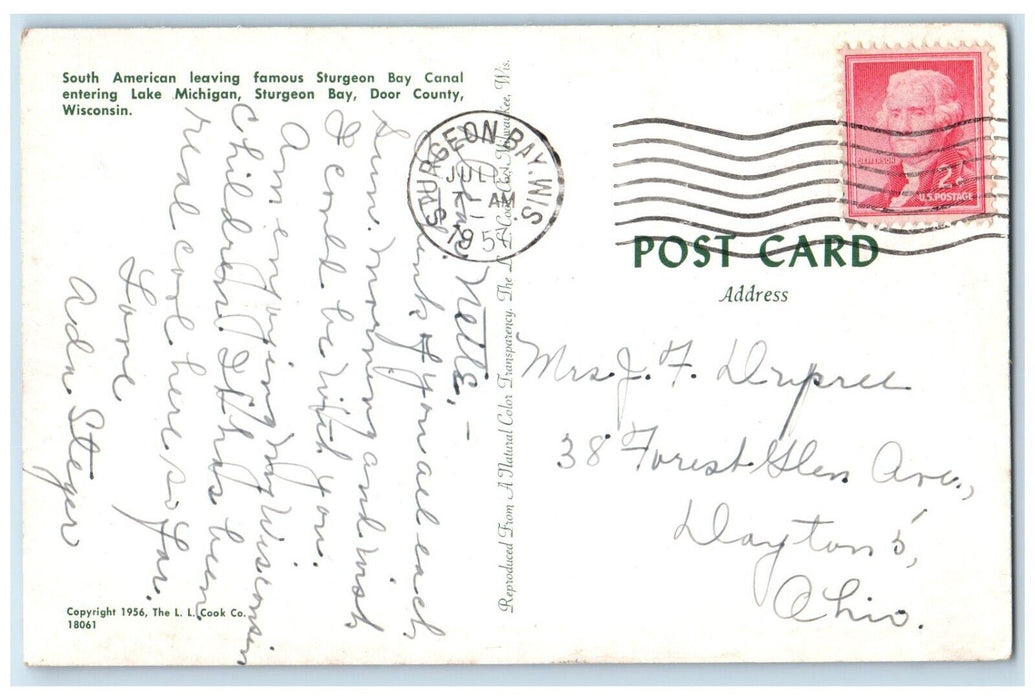 South American leaving famous Sturgeon Bay Canal
entering Lake Michigan, Sturgeon Bay, Door County,
Wisconsin.
Dear Nette, –
Think of you all each
Sun. morning and wish
I could be with you.
Am enjoying my Wisconsin
children. It has been
real cool here so far.
Love
Ada Steger
Copyright 1956, The L. L. Cook Co.
18061
Reproduced From A Natural Color Transparency. The L. L. Cook Co., Milwaukee, Wis.
STURGEON BAY, WIS.
JUL
7 AM
195
JEFFERSON
2¢
U.S. POSTAGE
POST CARD
Address
Mrs. J. F. Dupree
38 Forest Glen Ave.,
Dayton 5,
Ohio.